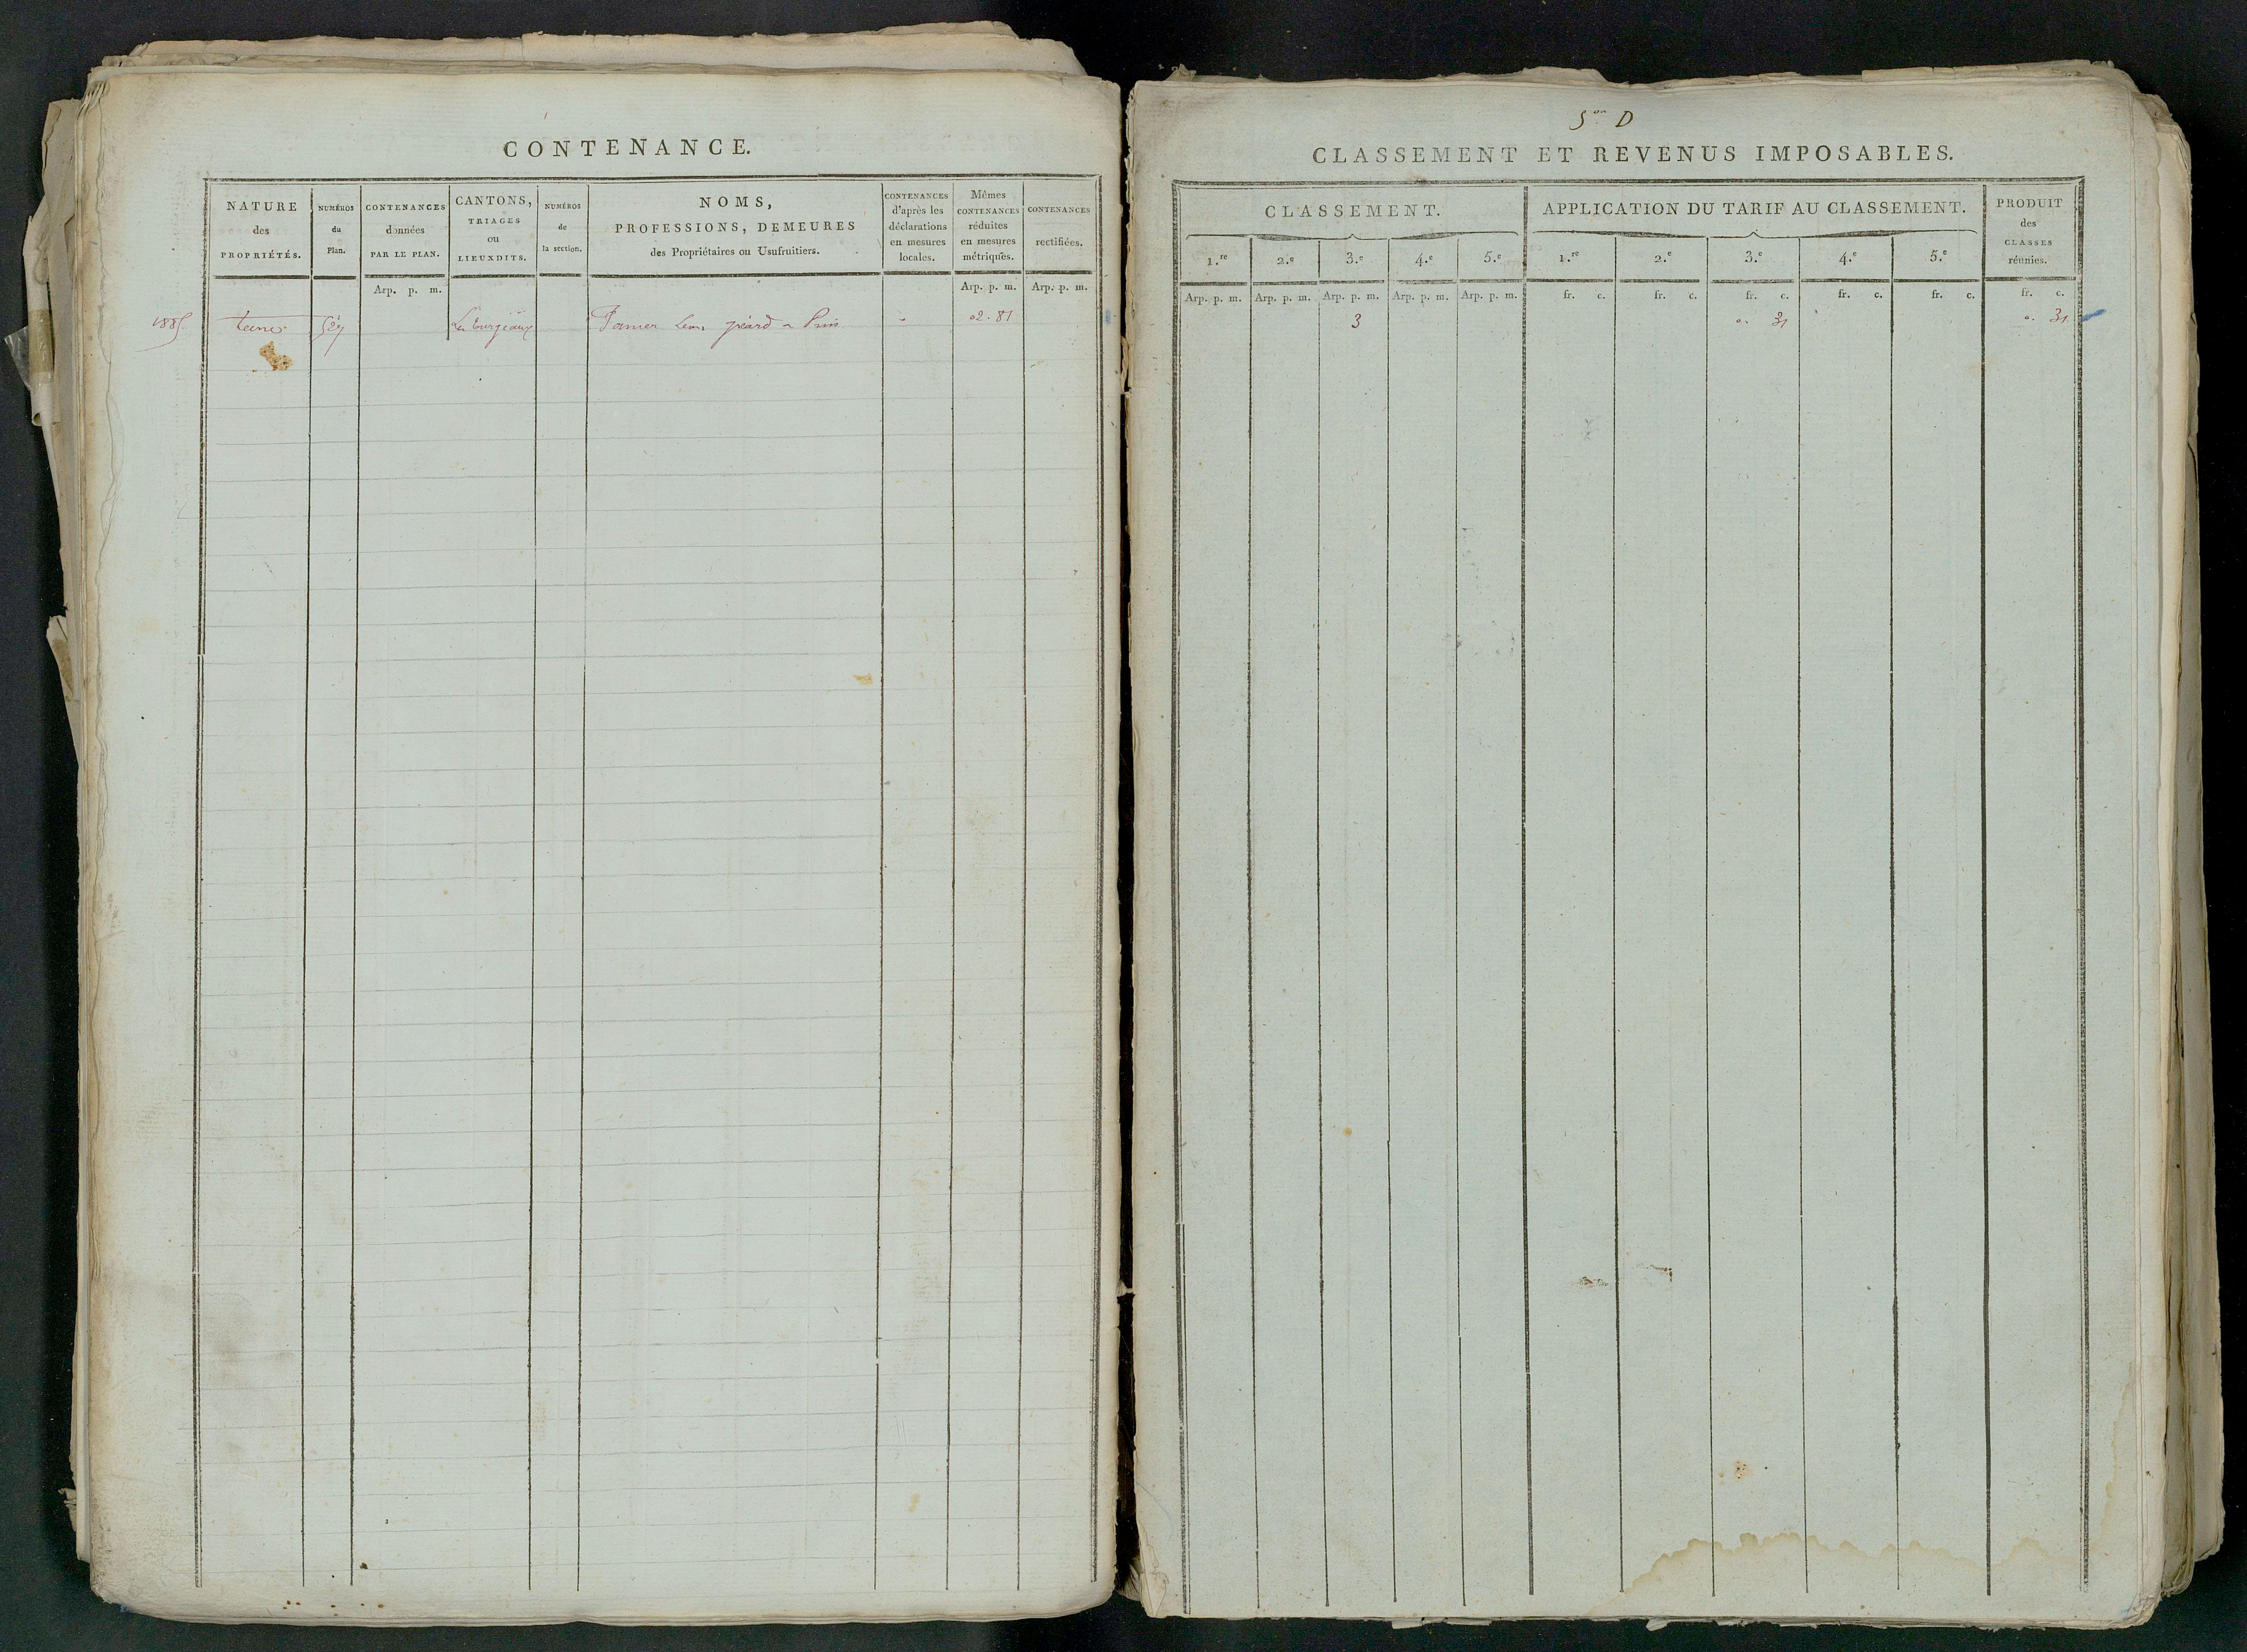 CONTENANCE.
NATURE
des
PROPRIÉTÉS.
NUMÉROS
du
Plan.
CONTENANCES
données
PAR LE PLAN.
CANTONS,
TRIAGES
ou
LIEUXDITS.
NUMÉROS
de
la section.
NOMS,
PROFESSIONS, DEMEURES
des Propriétaires ou Usufruitiers.
CONTENANCES
d'après les
déclarations
en mesures
locales.
Mêmes
CONTENANCES
réduites
en mesures
métriques.
CONTENANCES
rectifiées.
Arp. p. m.
Arp. p. m.
Arp. p. m.
1885 terre 02.81
Son D
CLASSEMENT ET REVENUS IMPOSABLES.
CLASSEMENT.
APPLICATION DU TARIF AU CLASSEMENT.
PRODUIT
des
CLASSES
réunies.
1.re 2.e 3.e 4.e 5.e 1.re 2.e 3.e 4.e 5.e
Arp. p. m. Arp. p. m. Arp. p. m. Arp. p. m. Arp. p. m. fr. c. fr. c. fr. c. fr. c. fr. c. fr. c.
3 0. 31 0. 31